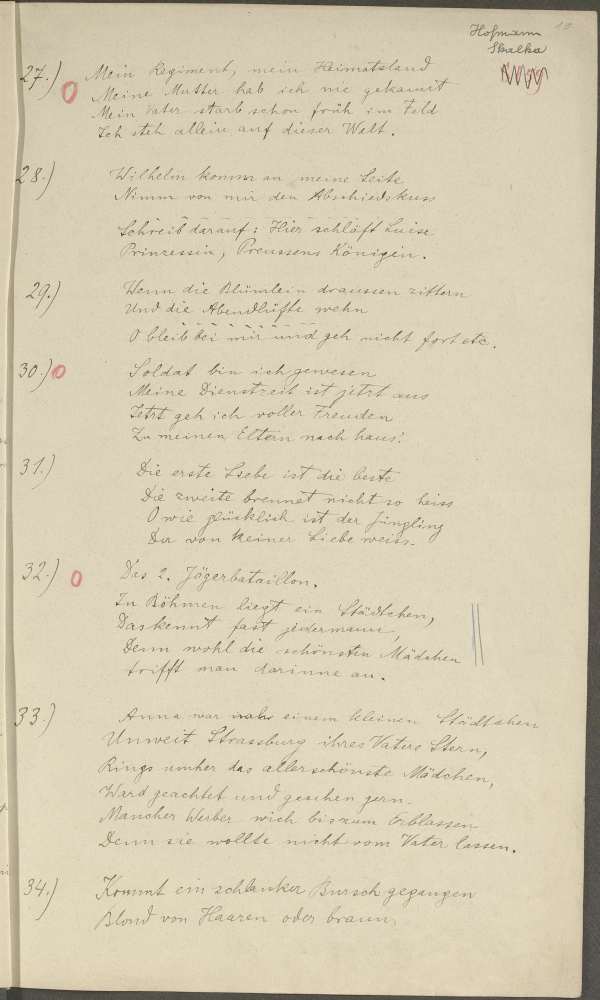 19
Hofmann
Skalka
27.) Mein Regiment, mein Heimatsland
Meine Mutter hab ich nie gekannt
Mein Vater starb schon früh im Feld
Ich steh allein auf dieser Welt.
28.) Wilhelm komm an meine Seite
Nimm von mir den Abschiedskuss
Schreib darauf: Hier schläft Luise
Prinzessin, Preussens Königin.
29.) Wenn die Blümlein draussen zittern
Und die Abendlüfte wehn
O bleib bei mir und geh nicht fort etc.
30.) Soldat bin ich gewesen
Meine Dienstzeit ist jetzt aus
Jetzt geh ich voller Freuden
Zu meinen Eltern nach haus!
31.) Die erste Liebe ist die beste
Die zweite brennet nicht so heiss
O wie glücklich ist der Jüngling
Der von keiner Liebe weiss.
32.) Das 2. Jägerbataillon.
In Böhmen liegt ein Städtchen,
Das kennt fast jedermann,
Denn wohl die schönsten Mädchen
trifft man darinne an.
33.) Anna war einem kleinen Städtchen
Unweit Strassburg ihres Vaters Stern,
Rings umher das allerschönste Mädchen,
Ward geachtet und gesehen gern.
Mancher Werber wich bis zum Erblassen
Denn sie wollte nicht vom Vater lassen.
34.) Kommt ein schlanker Bursch gegangen
Blond von Haaren oder braun,